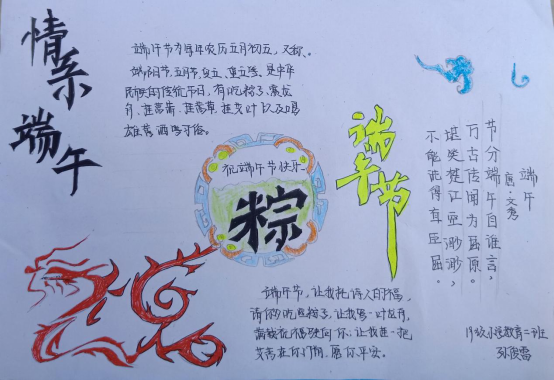 情系端午
端午节为每年农历五月初五，又称、
端阳节、五月节、
民族的传统节日，有吃粽子，赛龙
舟，挂菖蒲、
雄黄酒等习俗。
祝端午节快乐
粽
端午节
端午
唐·文秀
节分端午自谁言，
万古传闻为屈原。
堪笑楚江空渺渺，
不能洗得直臣屈。
端午节，让我把诗人的
请你吃些粽子，让我
满载祝福驶向你；让我连一把
艾香在你门前，愿你平安。
小学教育二班